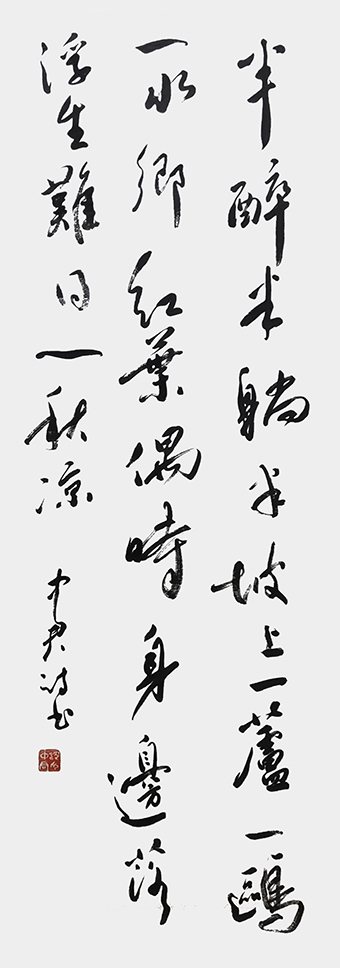 半醉半躺半坡上一蘆一鷗
一水鄉紅葉偶時身邊落
浮生難日一秋凉
中君詩书